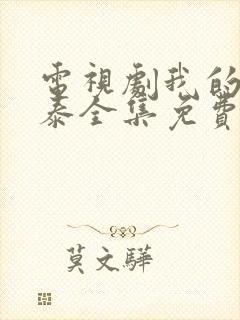 電視劇我的
泰全集免費
莫文驊